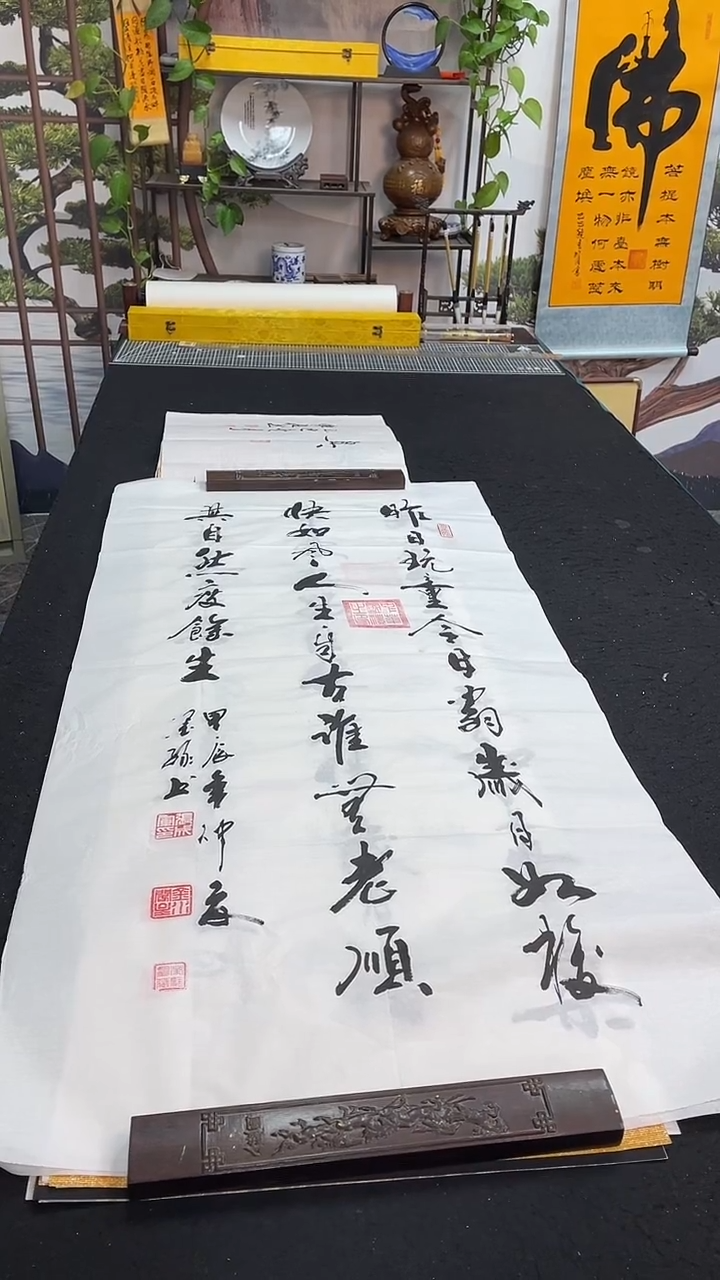 佛
菩提本無樹明
鏡亦非臺本來
無一物何處惹
塵埃
福
昨日玩童今日翁歲月如梭
快如风人生自古誰無老順
其自然度餘生
甲辰年仲夏